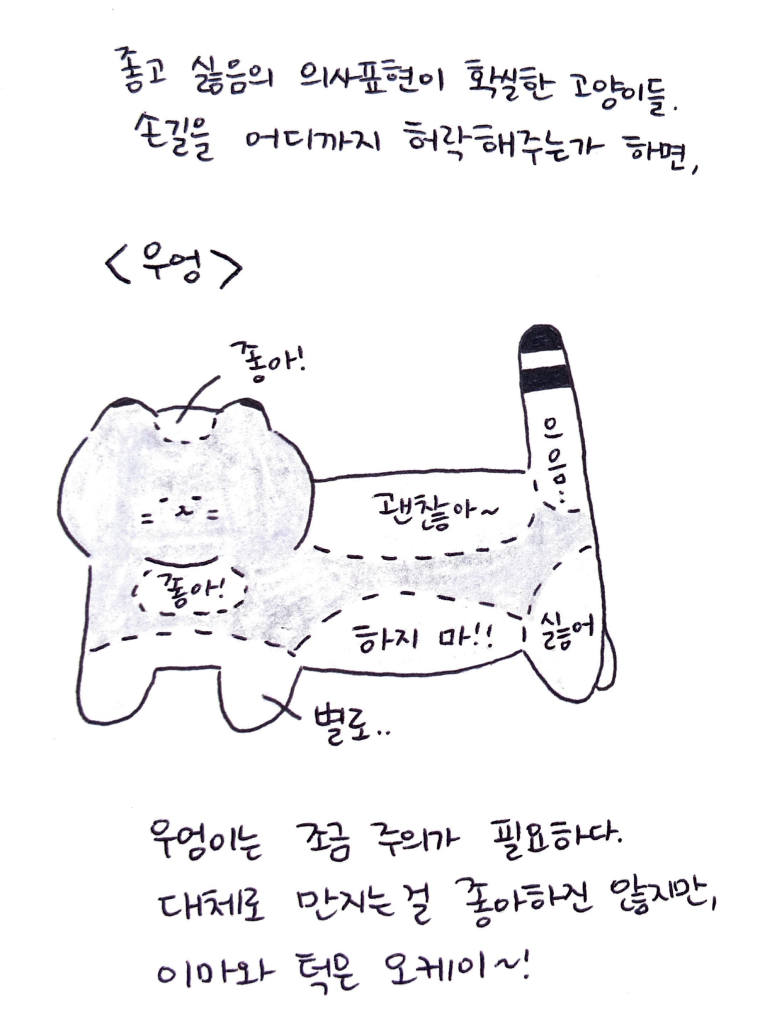 좋고 싫음의 의사표현이 확실한 고양이들.
손길을 어디까지 허락해주는가 하면,
<우엉>
좋아!
으음..
괜찮아~
좋아!
하지 마!!
싫어
별로..
우엉이는 조금 주의가 필요하다.
대체로 만지는 걸 좋아하진 않지만,
이마와 턱은 오케이~!